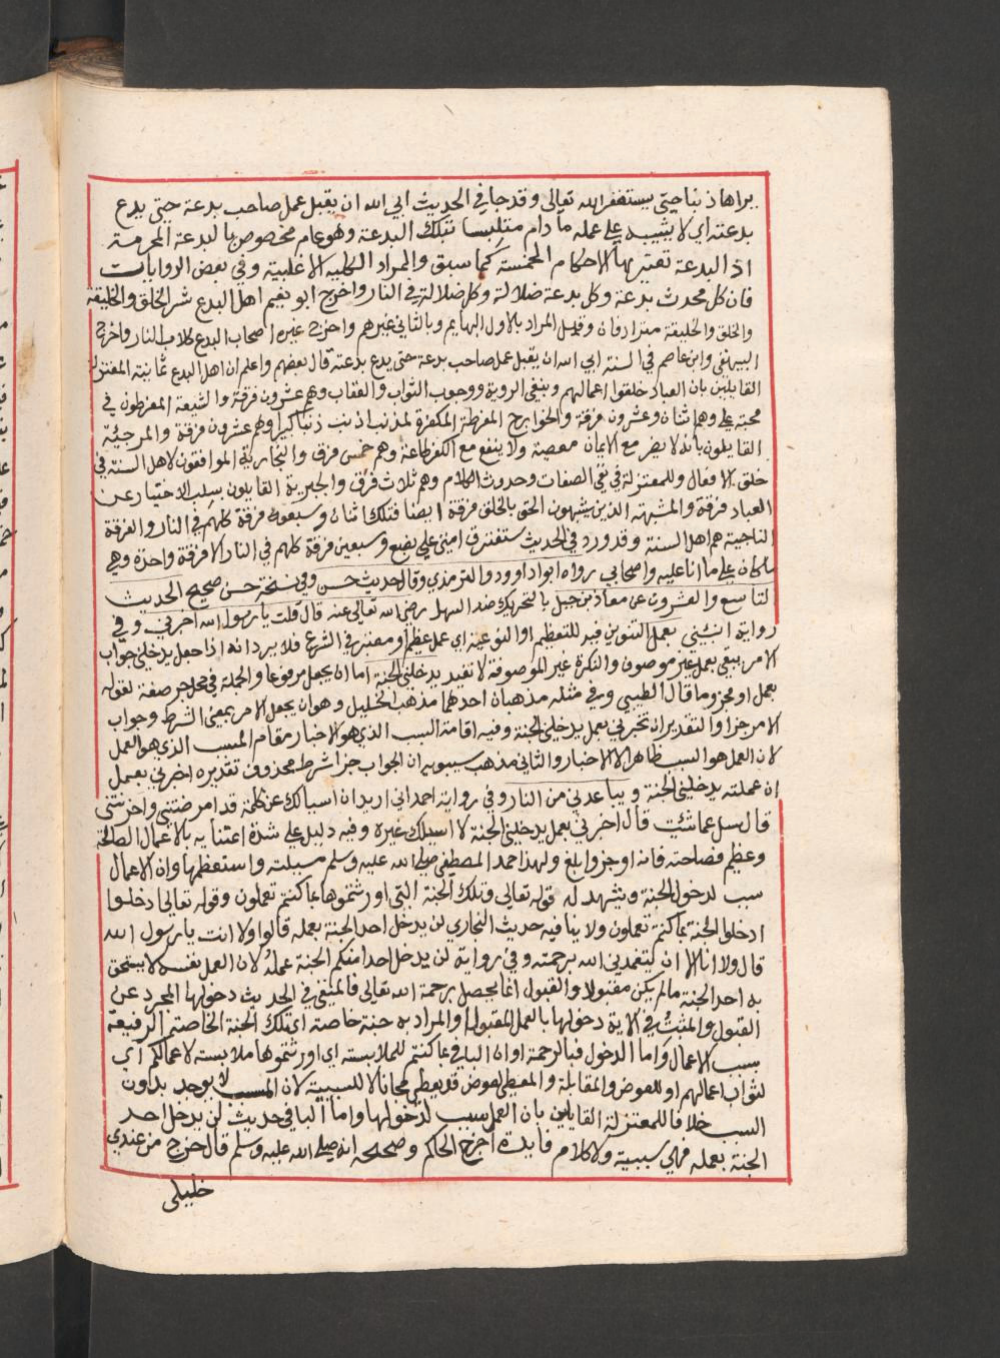 يراها ذنبا حتى يستغفر الله تعالى وقد جا في الحديث ابي الله ان يقبل عمل صاحب بدعة حتى يدع
بدعته اي لا يثيبه على عمله ما دام متلبسا بتلك البدعة وهو عام مخصوص بالبدعة المحرمة
اذ البدعة تعتريها الاحكام الخمسة كما سبق والمراد الكلية الاغلبية وفي بعض الروايات
فان كل محدث بدعة وكل بدعة ضلالة وكل ضلالة في النار واخرج ابو نعيم اهل البدع شر الخلق والخليقة
والخلق والخليقة مترادفان وقيل المراد بالاول البهايم وبالثاني غيرهم واخرج غيره اصحاب البدع كلاب النار واخرج
البيهقي وابن عاصم في السنة ابي الله ان يقبل عمل صاحب بدعة حتى يدع بدعته قال بعضهم واعلم ان اهل البدع ثمانية المعتزلة
القايلين بان العباد خلقوا اعمالهم وبنفي الروية ووجوب الثواب والعقاب وهم عشرون فرقة والشيعة المفرطون في
محبة علي وهم اثنان وعشرون فرقة والخوارج المفرطة المكفرة لمذنب اذنب ذنبا كبيرا وهم عشرون فرقة والمرجئة
القايلون بانه لا يضر مع الايمان معصية ولا ينفع مع الكفر طاعة وهم خمس فرق والنجارية الموافقون لاهل السنة في
خلق الافعال وللمعتزلة في نفي الصفات وحدوث الكلام وهم ثلاث فرق والجبرية القايلون بسلب الاختيار عن
العباد فرقة والمشبهة الذين يشبهون الحق بالخلق فرقة ايضا فتلك اثنان وسبعون فرقة كلهم في النار والفرقة
الناجية هم اهل السنة وقد ورد في الحديث ستفترق امتي على بضع وسبعين فرقة كلهم في النار الا فرقة واحدة وهي
ما كان على ما انا عليه واصحابي رواه ابو داوود والترمذي وقال حديث حسن وفي نسخة حسن صحيح الحديث
التاسع والعشرون عن معاذ بن جبل بالتحريك ضد السهل رضي الله تعالى عنه قال قلت يا رسول الله اخبرني وفي
رواية انبئني بعمل التنوين فيه للتعظيم او النوعية اي عمل عظيم او معتبر في الشرع فلا يرد انه اذا جعل يدخلني جواب
الامر يبقى بعمل غير موصوف والنكرة غير الموصوفة لا تفيد يدخلني الجنة اما ان يجعل مرفوعا والجملة في محل جر صفة لقوله
بعمل او مجزوما قال الطيبي وفي مثله مذهبان احدهما مذهب الخليل وهو ان يجعل الامر بمعنى الشرط وجواب
الامر جزا والتقدير ان تخبرني بعمل يدخلني الجنة وفيه اقامة السبب الذي هو الاخبار مقام المسبب الذي هو العمل
لان العمل هو السبب ظاهرا لا الاخبار والثاني مذهب سيبويه ان الجواب جزا شرط محذوف تقديره اخبرني بعمل
ان عملته يدخلني الجنة ويباعدني من النار وفي رواية احمد اني اريد ان اسالك عن كلمة قد امرضتني واحزنتني
قال سل عما شئت قال اخبرني بعمل يدخلني الجنة لا اسيلك غيره وفيه دليل على شدة اعتنايه بالاعمال الصالحة
وعظيم فصاحته فانه اوجز وابلغ ولهذا حمد المصطفى صلى الله عليه وسلم مسيلته واستعظمها وان الاعمال
سبب لدخول الجنة ويشهد له قوله تعالى وتلك الجنة التي اورثتموها بما كنتم تعملون وقوله تعالى ادخلوا
ادخلوا الجنة بما كنتم تعملون ولا ينافيه حديث البخاري لن يدخل احد الجنة بعمله قالوا ولا انت يا رسول الله
قال ولا انا الا ان يتغمدني الله برحمته وفي رواية لن يدخل احدا منكم الجنة عمله لان العمل نفسه لا يستحق
به احد الجنة ما لم يكن مقبولا والقبول انما يحصل برحمة الله تعالى فالمنفي في الحديث دخولها المجرد عن
القبول والمثبت في الاية دخولها بالعمل المقبول او المراد به جنة خاصة اي تلك الجنة الخاصة الرفيعة
بسبب الاعمال واما الدخول فبالرحمة او ان البا في بما كنتم للملابسة اي اورثتموها ملابسة لاعمالكم اي
لثواب اعمالهم او للعوض والمقابلة والمعطي بعوض قد يعطي مجانا لا للسببية لان المسبب لا يوجد بدون
السبب خلافا للمعتزلة القايلين بان العمل سبب لدخولها واما البا في حديث لن يدخل احد
الجنة بعمله فهي سببية ولا كلام فايدة اخرج الحاكم وصححه انه صلى الله عليه وسلم قال خرج من عندي
خليلي